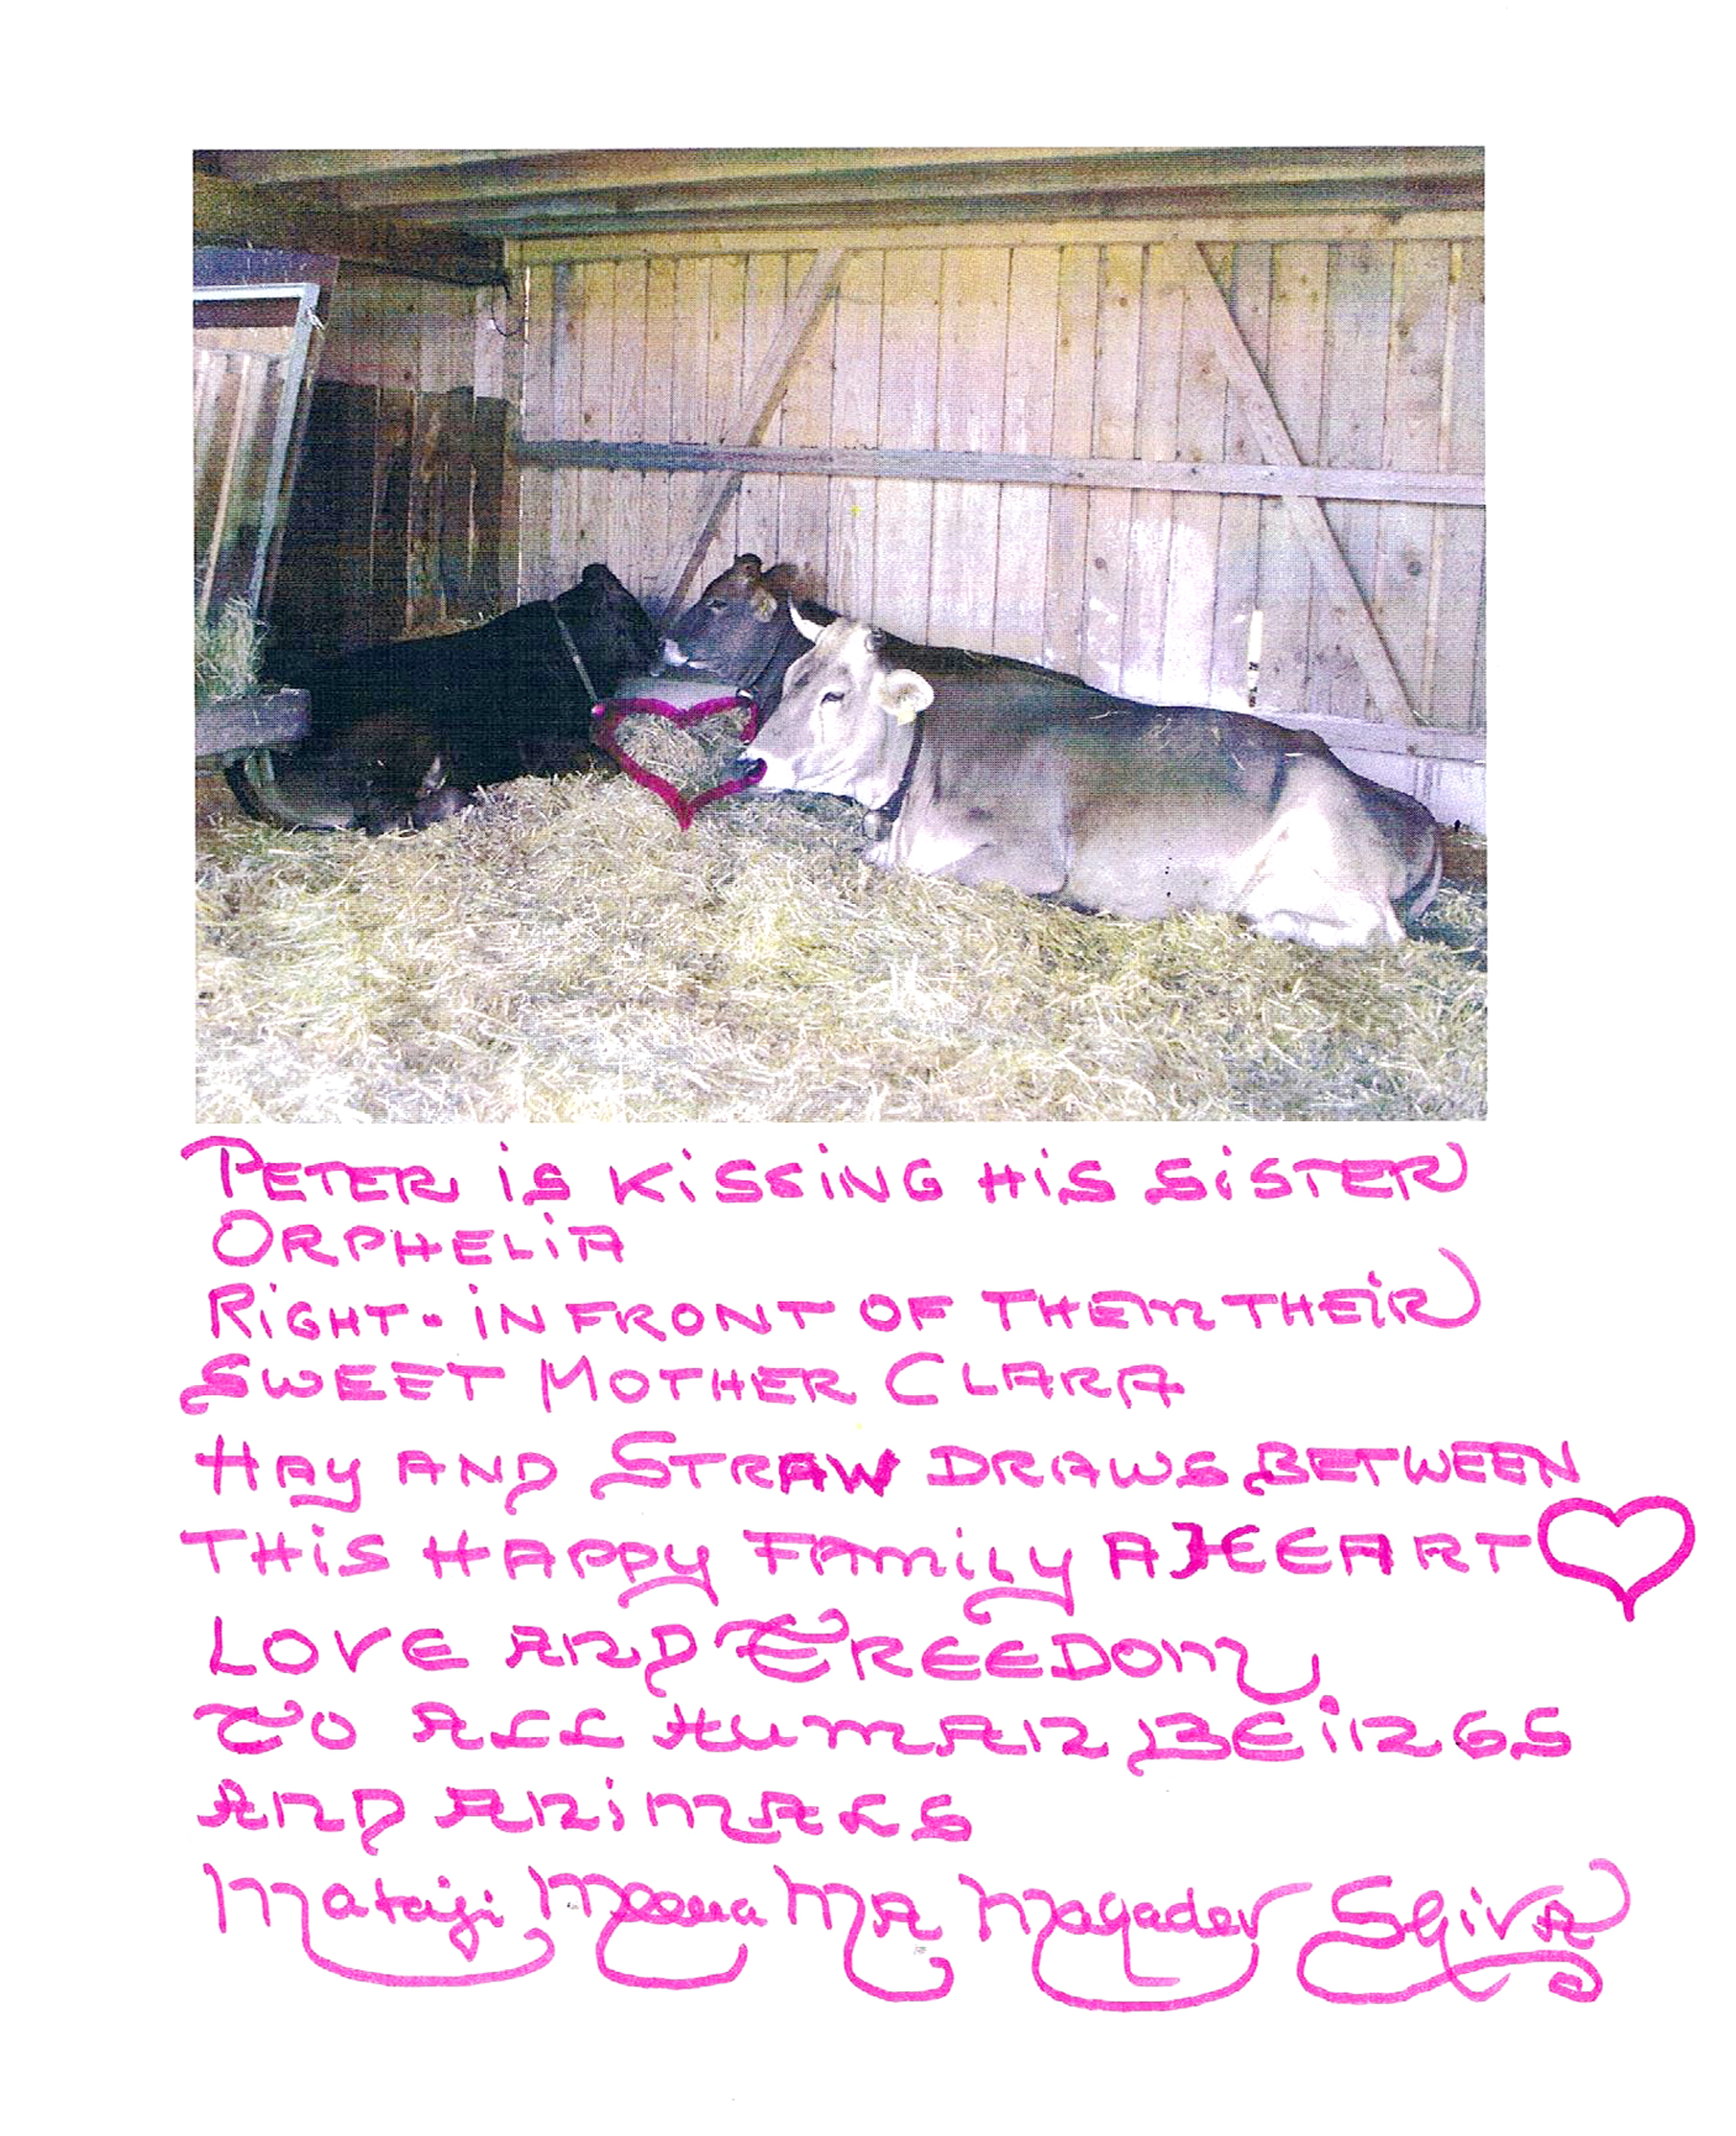 PETER iS KiSSiNG HiS SiSTER
ORPHELiA
RiGHT - iN FRONT OF THEM THEiR
SWEET MOTHER CLARA
HAY AND STRAW DRAWS BETWEEN
THiS HAPPY FAMiLY A HEART
LOVE AND FREEDOM
TO ALL HUMAN BEiNGS
AND ANiMALS
Mataji Ma Magadev Shiva